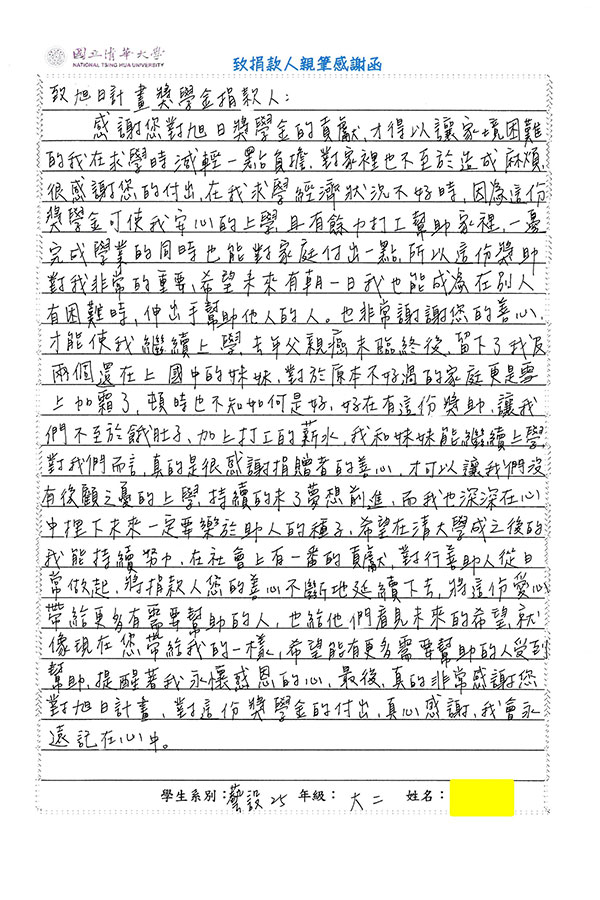 國立清華大學
NATIONAL TSING HUA UNIVERSITY
致捐款人親筆感謝函
致旭日計畫獎學金捐款人：
感謝您對旭日獎學金的貢獻，才得以讓家境困難
的我在求學時減輕一點負擔，對家裡也不至於造成麻煩，
很感謝您的付出，在我求學經濟狀況不好時，因為這份
獎學金可使我安心的上學，且有餘力打工幫助家裡，一邊
完成學業的同時也能對家庭付出一點，所以這份獎助
對我非常的重要，希望未來有朝一日我也能成為在別人
有困難時，伸出手幫助他人的人。也非常謝謝您的善心，
才能使我繼續上學，去年父親癌末臨終後，留下了我及
兩個還在上國中的妹妹，對於原本不好過的家庭更是雪
上加霜了，頓時也不知如何是好，好在有這份獎助，讓我
們不至於餓肚子，加上打工的薪水，我和妹妹能繼續上學
對我們而言，真的是很感謝捐贈者的善心，才可以讓我們沒
有後顧之憂的上學，持續的來了夢想前進，而我也深深在心
中埋下未來一定要樂於助人的種子，希望在清大學成之後的
我能持續努力，在社會上有一番的貢獻，對行善助人從日
常做起，將捐款人您的善心不斷地延續下去，將這份愛心
帶給更多有需要幫助的人，也給他們看見未來的希望，就
像現在您帶給我的一樣，希望能有更多需要幫助的人受到
幫助，提醒著我永懷感恩的心，最後，真的非常感謝您
對旭日計畫，對這份獎學金的付出，真心感謝，我會永
遠記在心中。
學生系別：藝設25 年級：大二 姓名：